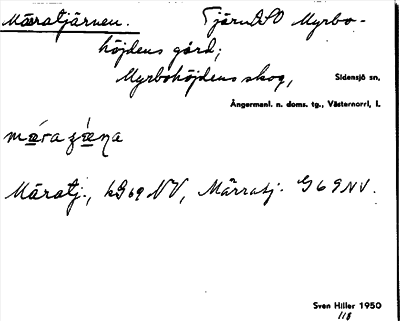 Märatjärnen. Tjärn OSO Myrbo-
höjdens gård;
Myrbohöjdens skog, Sidensjö sn,
Ångermanl. n. doms. tg., Västernorrl. l.
Märatj., kG69NV, Märratj. G69NV.
Sven Hiller 1950
118